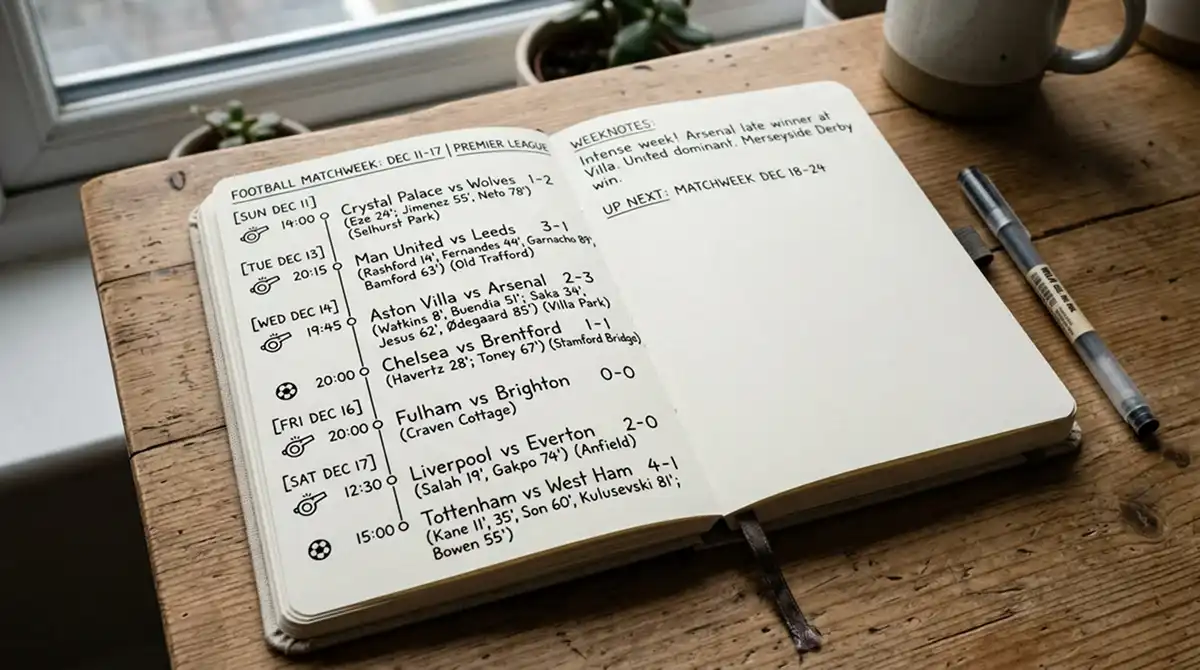 FOOTBALL MATCHWEEK: DEC 11-17 | PREMIER LEAGUE
[SUN DEC 11]
14:00
Crystal Palace vs Wolves 1-2
(Eze 24'; Jimenez 55', Neto 78')
(Selhurst Park)
[TUE DEC 13]
20:15
Man United vs Leeds 3-1
(Rashford 14', Fernandes 44', Garnacho 89',
Bamford 63') (Old Trafford)
[WED DEC 14]
19:45
Aston Villa vs Arsenal 2-3
(Watkins 8', Buendia 51'; Saka 34',
Jesus 62', Ødegaard 85') (Villa Park)
20:00
Chelsea vs Brentford 1-1
(Havertz 28'; Toney 67') (Stamford Bridge)
[FRI DEC 16]
20:00
Fulham vs Brighton 0-0
(Craven Cottage)
[SAT DEC 17]
12:30
Liverpool vs Everton 2-0
(Salah 19', Gakpo 74') (Anfield)
15:00
Tottenham vs West Ham 4-1
(Kane 11', 35', Son 60', Kulusevski 81';
Bowen 55')
WEEKNOTES:
Intense week! Arsenal late winner at
Villa. United dominant. Merseyside Derby
win.
UP NEXT: MATCHWEEK DEC 18-24